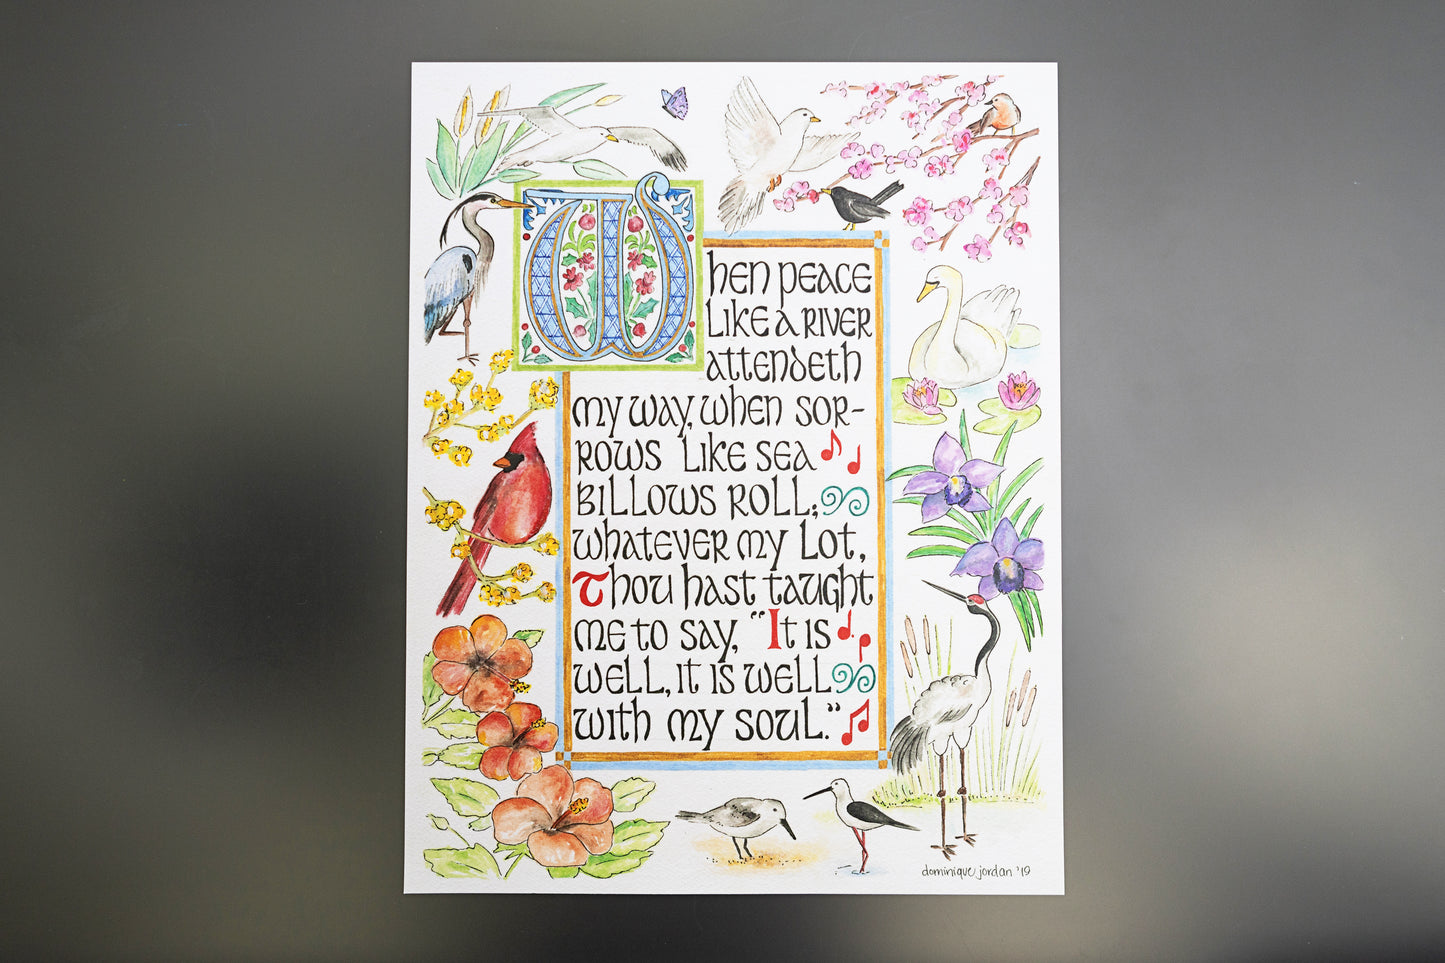 When peace
like a river
attendeth
my way, when sor-
rows like sea
billows roll;
whatever my lot,
Thou hast taught
me to say, "It is
well, it is well
with my soul."
dominique jordan '19